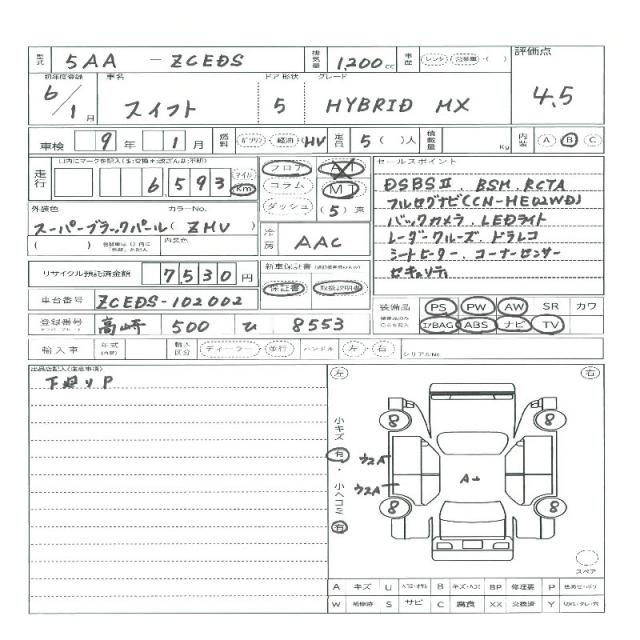 型式 5AA - ZCEDS 排気量 1,200 cc 車歴 (レンタ)(自家用)( ) 評価点
初年度登録 車名 ドア 形状 グレード
6/1月 スイフト 5 HYBRID MX 4.5
車検 9年 1月 燃料 ガソリン・軽油・(HV) 定員 5( )人 積載量 Kg 内装 A B C
走行 6,593 マイル Km フロア AT セールスポイント
コラム MT DSBSⅡ. BSM. RCTA
ダッシュ (5)速 フルセグナビ(CN-HE02WD)
外装色 カラーNo. バックカメラ. LEDライト
スーパーブラックパール( ZMV ) 冷房 AAC レーダークルーズ. ドラレコ
( ) 内装色 シートヒーター. コーナーセンサー
リサイクル預託済金額 7530円 新車保証書 セキュリティ
保証書 取扱説明書
車台番号 ZCEDS-102002 装備品 PS PW AW SR カワ
登録番号 高崎 500 ひ 8553 エアBAG ABS ナビ TV
輸入車 年式 輸入区分 ディーラー・並行 ハンドル 左・右 シリアルNo.
出品店記入(注意事項) 左 右
下廻りP
小キズ 有・小ヘコミ 有
8 8
ウスA
A-
ウスA
8 8
スペア
A キズ U B キズ・ヘコミ BP 修理要 P
W 補修跡 S サビ C 腐食 XX 交換済 Y